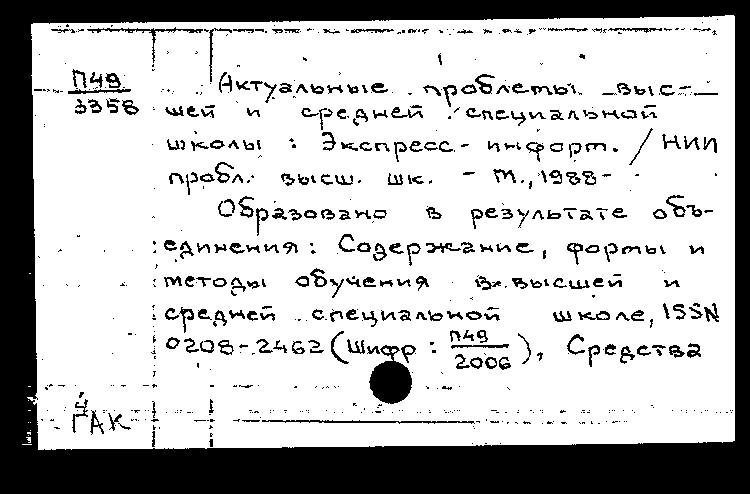 П49
3358
Актуальные проблемы выс-
шей и средней специальной
школы : Экспресс-информ. / НИИ
пробл. высш. шк. - М., 1988-
Образовано в результате объ-
единения: Содержание, формы и
методы обучения в высшей и
средней специальной школе, ISSN
0208-2462 (Шифр: П49/2006), Средства
4
ГАК